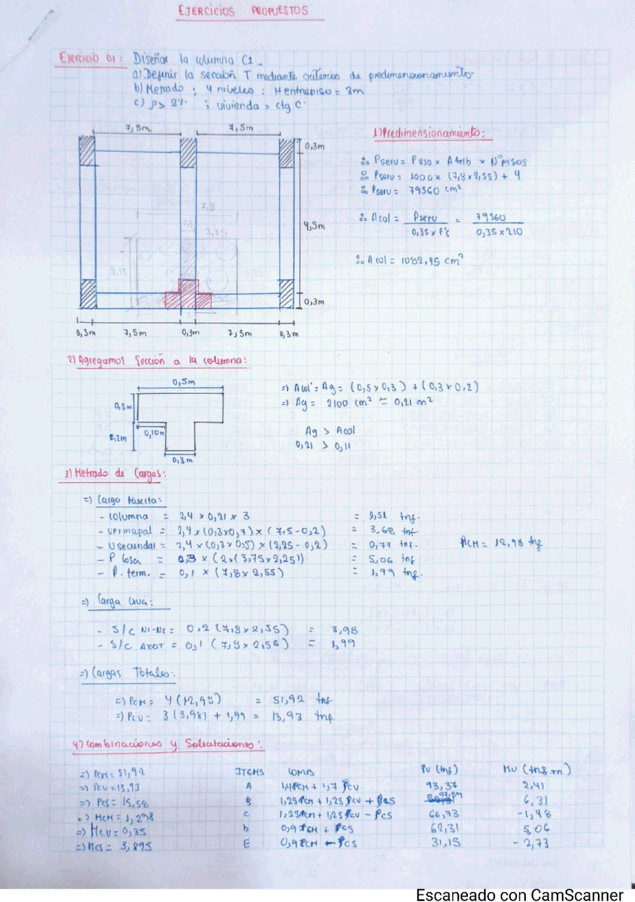 EJERCICIOS PROPUESTOS
EJERCICIO 01: Diseñar la columna C1.
a) Definir la sección T mediante criterios de predimensionamiento
b) Metrado ; 4 niveles ; H entrepiso = 3m
c) ρ > 2% ; vivienda = ctg C
7,5m
7,5m
0,3m
4,5m
0,3m
0,3m
7,5m
0,3m
7,5m
0,3m
1) Predimensionamiento:
∴ Pserv = P
∴ Pserv = 1000 x (7,8 x 2,55) x 4
∴ Pserv = 79560 cm²
∴ Acol = Pserv / 0,35 x F'c = 79560 / 0,35 x 210
∴ Acol = 1082,45 cm²
2) Agregamos Sección a la columna:
0,5m
0,3m
0,10m
0,2m
0,3m
=) Acol = Ag = (0,5 x 0,3) + (0,3 x 0,2)
=) Ag = 2100 cm² ≈ 0,21 m²
Ag > Acol
0,21 > 0,11
3) Metrado de Cargas:
=) Carga Muerta:
- Columna = 2,4 x 0,21 x 3 = 1,51 tnf.
- V principal = 2,4 x (0,3x0,7) x (7,5 - 0,2) = 3,68 tnf.
- V secundal = 2,4 x (0,3 x 0,5) x (2,25 - 0,2) = 0,74 tnf.
- P losa = 0,3 x (2x(3,75x2,25)) = 5,06 tnf.
- P. term. = 0,1 x (7,8 x 2,55) = 1,99 tnf.
PCM = 12,98 tnf
=) Carga Viva:
- S/C N1-N2 = 0,2 (7,8 x 2,55) = 3,98
- S/C AZOT = 0,1 (7,8 x 2,55) = 1,99
=) Cargas Totales:
=) PCM = 4(12,98) = 51,92 tnf
=) PCV = 3(3,98) + 1,99 = 13,93 tnf.
4) Combinaciones y Solicitaciones:
ITEMS COMBS PU (tnf) MU (tnf.m)
=) PCM = 51,92 A 1,4PCM + 1,7 PCV 93,37 2,41
=) PCV = 13,93 B 1,25PCM + 1,25 PCV + PCS 6,31
=) PCS = 15,58 C 1,25PCM + 1,25 PCV - PCS 66,73 -1,48
=) MCM = 1,298 D 0,9PCM + PCS 62,31 5,06
=) MCV = 0,35 E 0,9PCM - PCS 31,15 - 2,73
=) MCS = 3,895
Escaneado con CamScanner